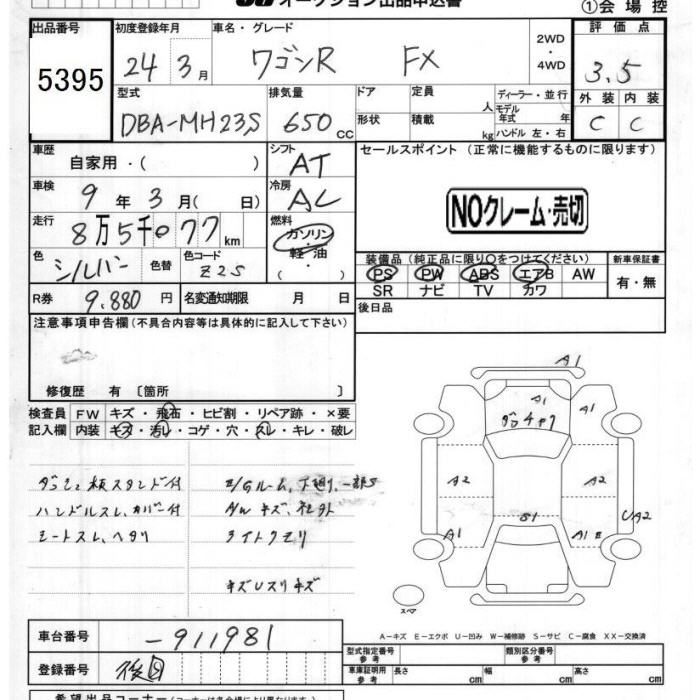 オークション出品申込書 ①会場控
出品番号 初度登録年月 車名・グレード 2WD・4WD 評価点
5395 24年3月 ワゴンR FX 3.5
型式 排気量 ドア 定員 人 ディーラー・並行 外装 内装
DBA-MH23S 650cc 形状 積載 kg モデル年式 年 ハンドル 左・右 C C
車歴 自家用・( ) シフト AT セールスポイント(正常に機能するものに限ります)
車検 9年3月( 日) 冷房 AC NOクレーム・売切
走行 8万5千077km 燃料 ガソリン・軽油・( )
色 シルバー 色替 色コード Z2S
装備品(純正品に限り○をつけてください) 新車保証書
PS PW ABS エアB AW 有・無
SR ナビ TV カワ
R券 9,880円 名変通知期限 月 日 後日品
注意事項申告欄(不具合内容等は具体的に記入して下さい)
修復歴 有 〔箇所 〕
検査員 FW キズ・飛石・ヒビ割・リペア跡・×要
記入欄 内装 キズ・汚レ・コゲ・穴・スレ・キレ・破レ
ダッシュ板スタンド付 E/Gルーム、下廻り、一部S
ハンドルスレ、カバー付 AWキズ、社外
シートスレ、ヘタリ ライトクモリ
キズUスリキズ
A1
A1 A1
A2 A2
S1 UA2
A1 A1E
スペア
A-キズ E-エクボ U-凹み W-補修跡 S-サビ C-腐食 XX-交換済
車台番号 -911981 型式指定番号 参考 類別区分番号 参考
登録番号 後日 車庫証明用 参考 長さ cm 幅 cm 高さ cm
希望出品コーナー(コーナーは各会場により異なります)